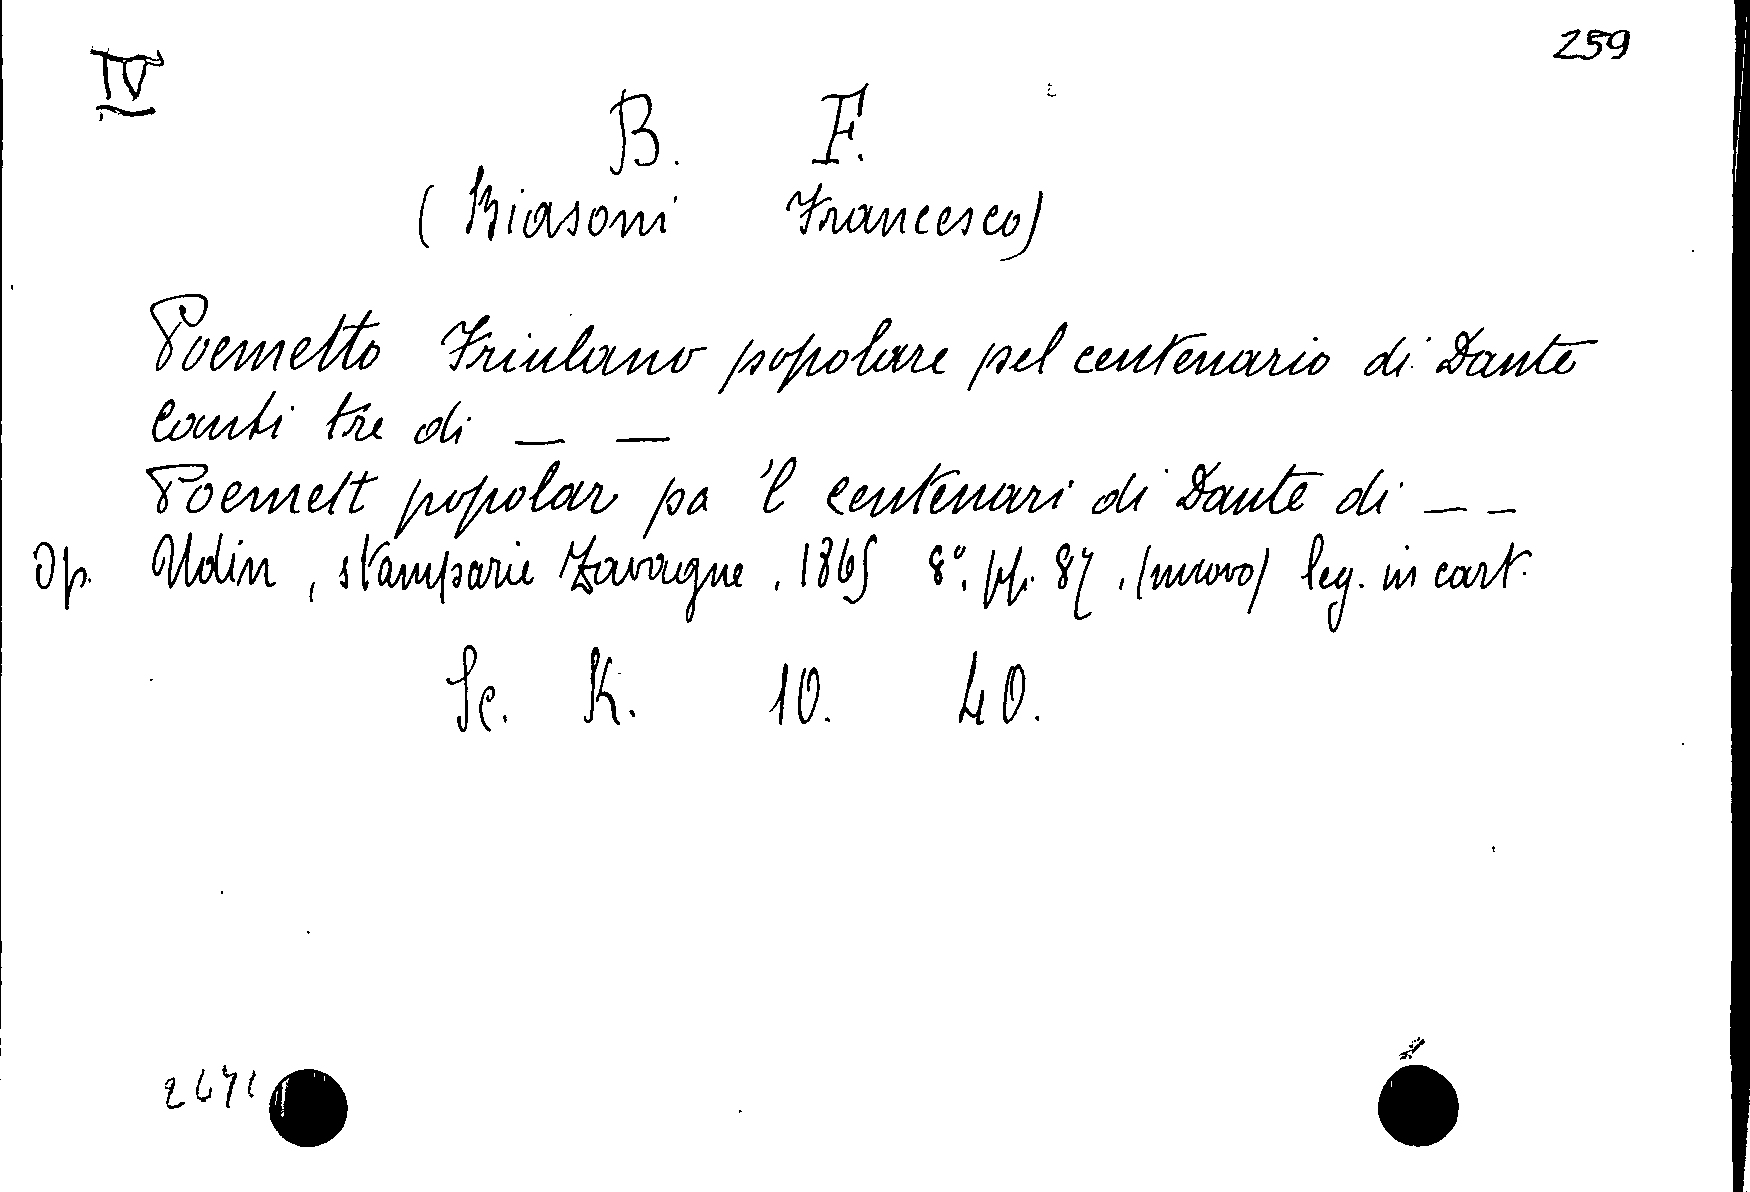 259
IV
B. F.
(Biasoni Francesco)
Poemetto Friulano popolare pel centenario di Dante
Canti tre di _ _
Poemett popolar pa 'l centenari di Dante di _ _
Op. Udin, stamparie Zavagne, 1865 8°. pp. 87. (nuovo) leg. in cart.
Sc. K. 10. 40.